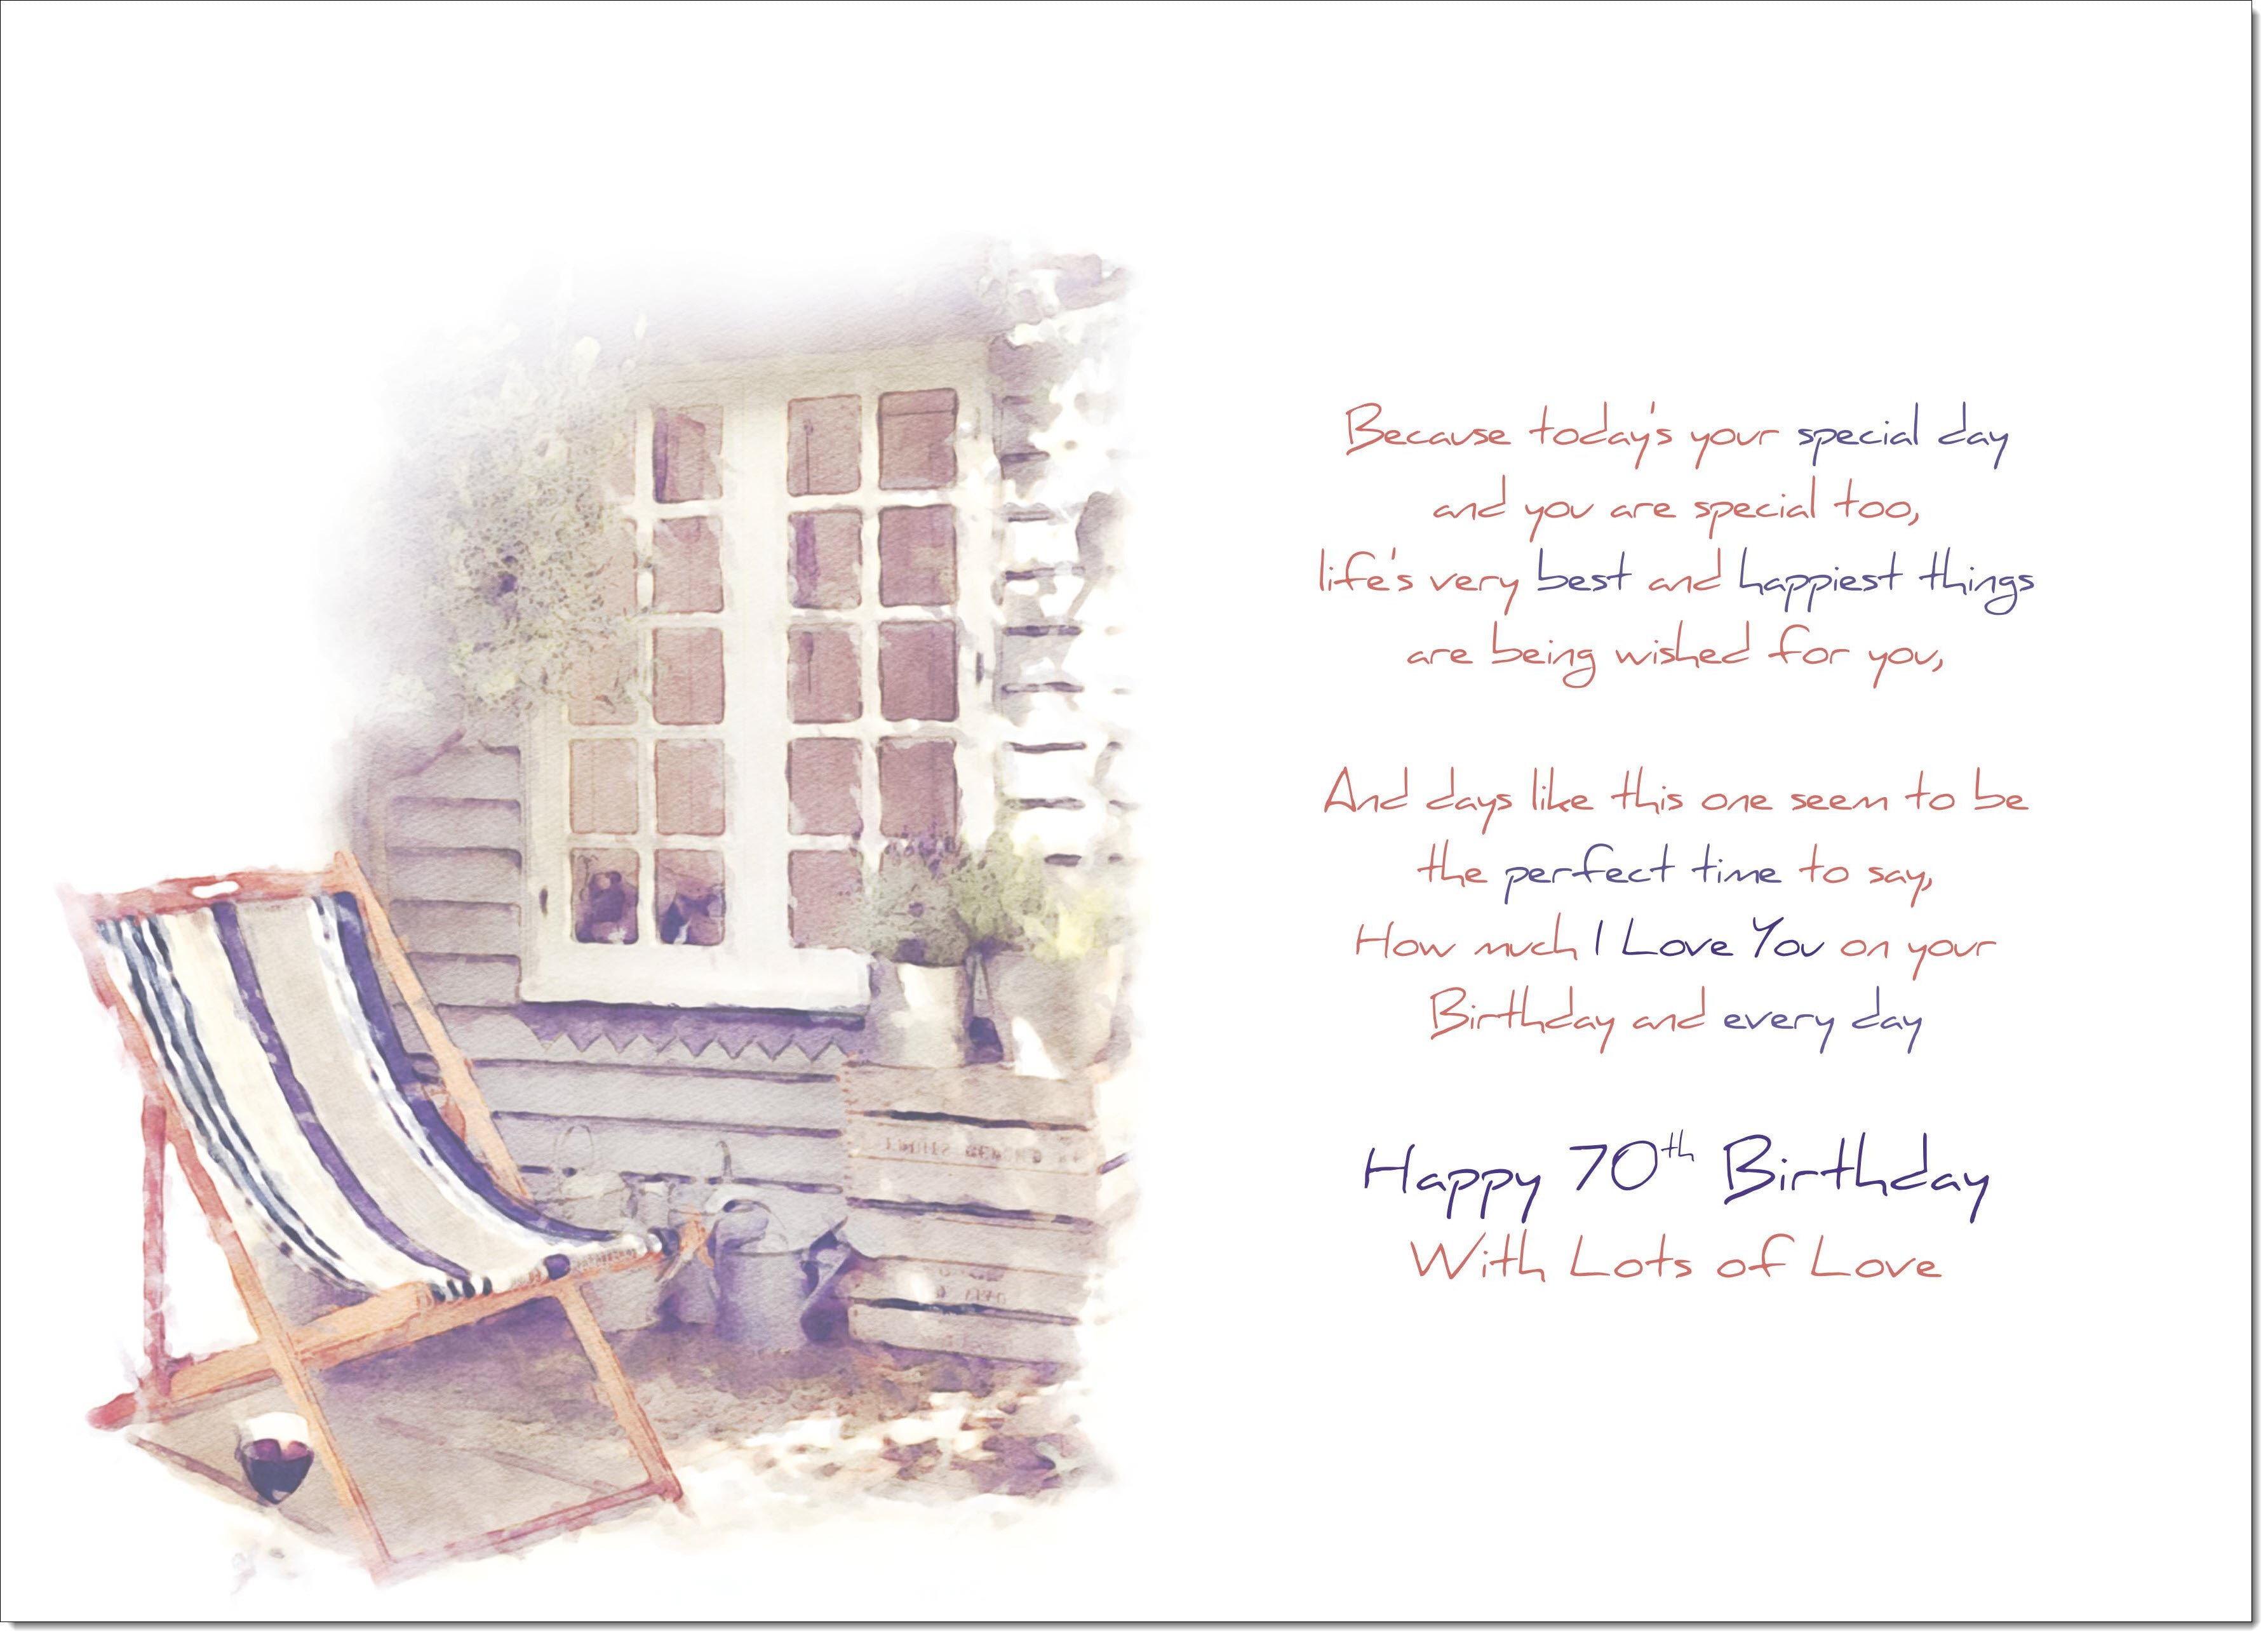 Because today's your special day
and you are special too,
life's very best and happiest things
are being wished for you,
And days like this one seem to be
the perfect time to say,
How much I Love You on your
Birthday and every day
Happy 70th Birthday
With Lots of Love